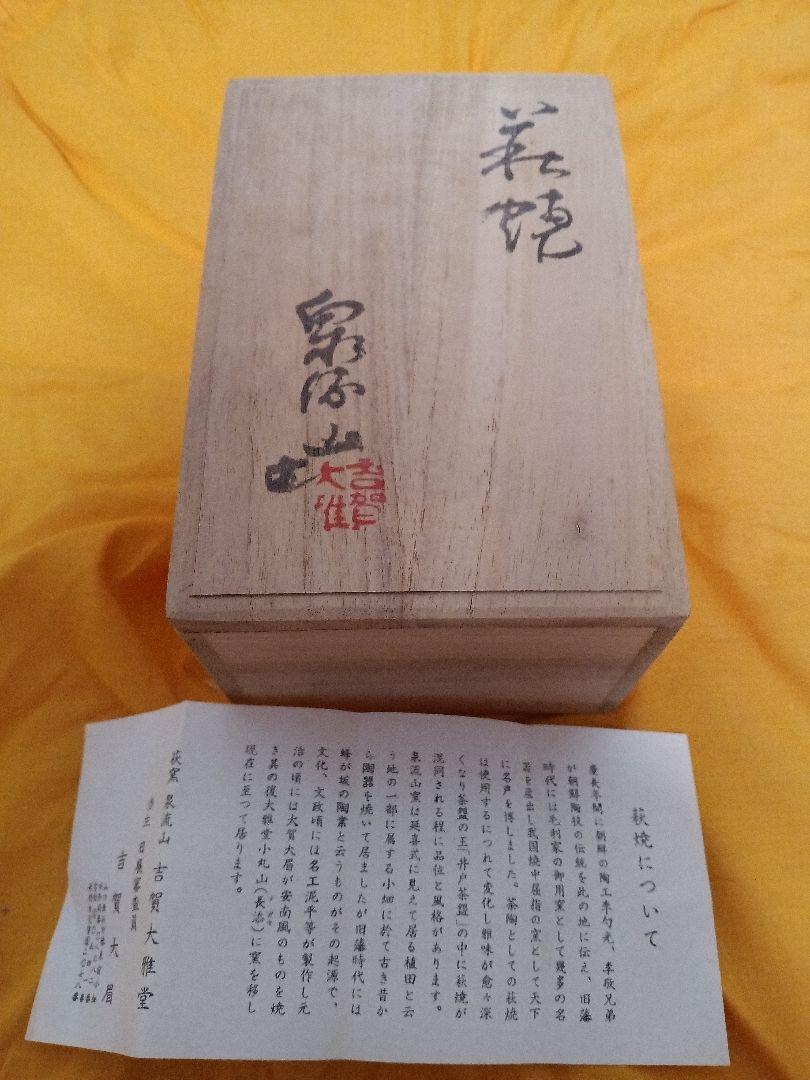 萩焼
泉流山
吉賀
大雅
萩焼について
慶長年間に朝鮮の陶工李勺光、李敬兄弟
が朝鮮陶技の伝統を此の地に伝え、旧藩
時代には毛利家の御用窯として幾多の名
器を産出し我国焼中屈指の窯として天下
に名声を博しました。茶陶としての萩焼
は使用するにつれて変化し雅味が愈々深
くなり茶盌の王「井戸茶盌」の中に萩焼が
混同される程に品位と風格があります。
泉流山窯は延喜式に見えて居る植田と云
う地の一部に属する小畑に於て古き昔か
ら陶器を焼いて居ましたが旧藩時代には
蜂が坂の陶業と云うものがその起源で、
文化、文政頃には名工泥平等が製作し元
治の頃には大賀大眉が安南風のものを焼
き其の後大雅堂小丸山(長添)に窯を移し
現在に至つて居ります。
萩窯 泉流山 吉賀大雅堂
日展審査員
吉賀大眉